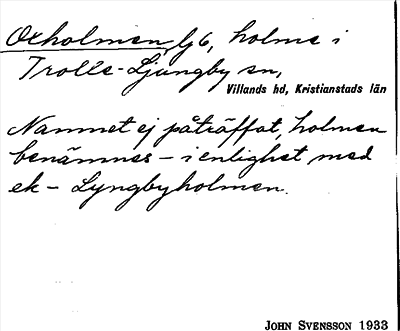 Oxholmen, lj 6, holme i
Trolle-Ljungby sn,
Villands hd, Kristianstads län
Namnet ej påträffat, holmen
benämnes - i enlighet med
ek - Lyngbyholmen.
JOHN SVENSSON 1933